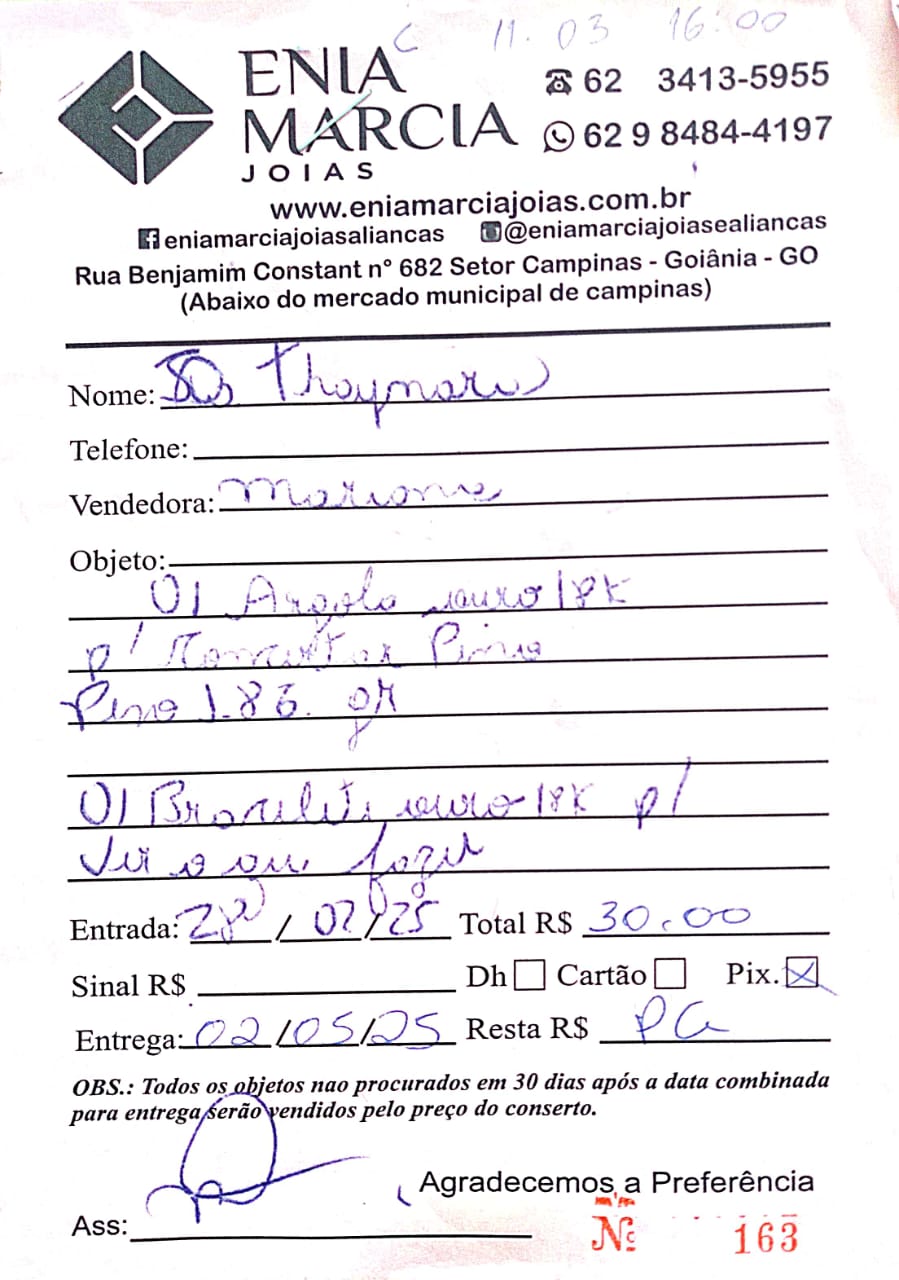 11.03 16:00
ENIA
MARCIA
JOIAS
62 3413-5955
62 9 8484-4197
www.eniamarciajoias.com.br
eniamarciajoiasaliancas @eniamarciajoiasealiancas
Rua Benjamim Constant nº 682 Setor Campinas - Goiânia - GO
(Abaixo do mercado municipal de campinas)
Nome: Thaynara
Telefone:
Vendedora: Mariana
Objeto:
01 Argola ouro 18K
p/ Pino
Peso 1.86 gr
01 Brazilete ouro 18K p/
Ver o que fazer
Entrada: 28/02/25 Total R$ 30.00
Sinal R$ Dh Cartão Pix.
Entrega: 02/05/25 Resta R$ PG
OBS.: Todos os objetos nao procurados em 30 dias após a data combinada
para entrega serão vendidos pelo preço do conserto.
Agradecemos a Preferência
Ass:
Nº 163